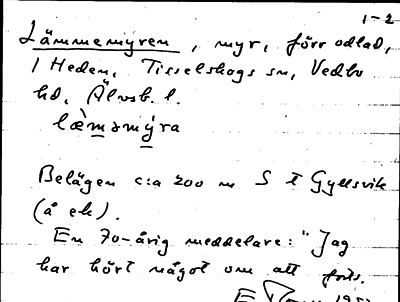 1-2
Lämmemyren, myr, förr odlad,
1 Heden, Tisselskogs sn, Vedbo
hd, Älvsb. l.
læ̀mǝmýra
Belägen c:a 200 m S t Gyllsvik
(å ek).
En 70-årig meddelare: "Jag
har hört något om att forts.